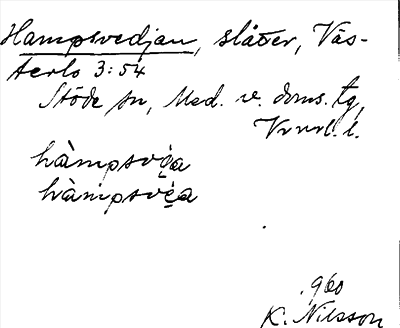 Hampsvedjan, slåtter, Väs-
terlo 3:54
Stöde sn, Med. v. doms. tg,
Vnrl. l.
hàmpsvèa
hàmpsvèa
960
K. Nilsson